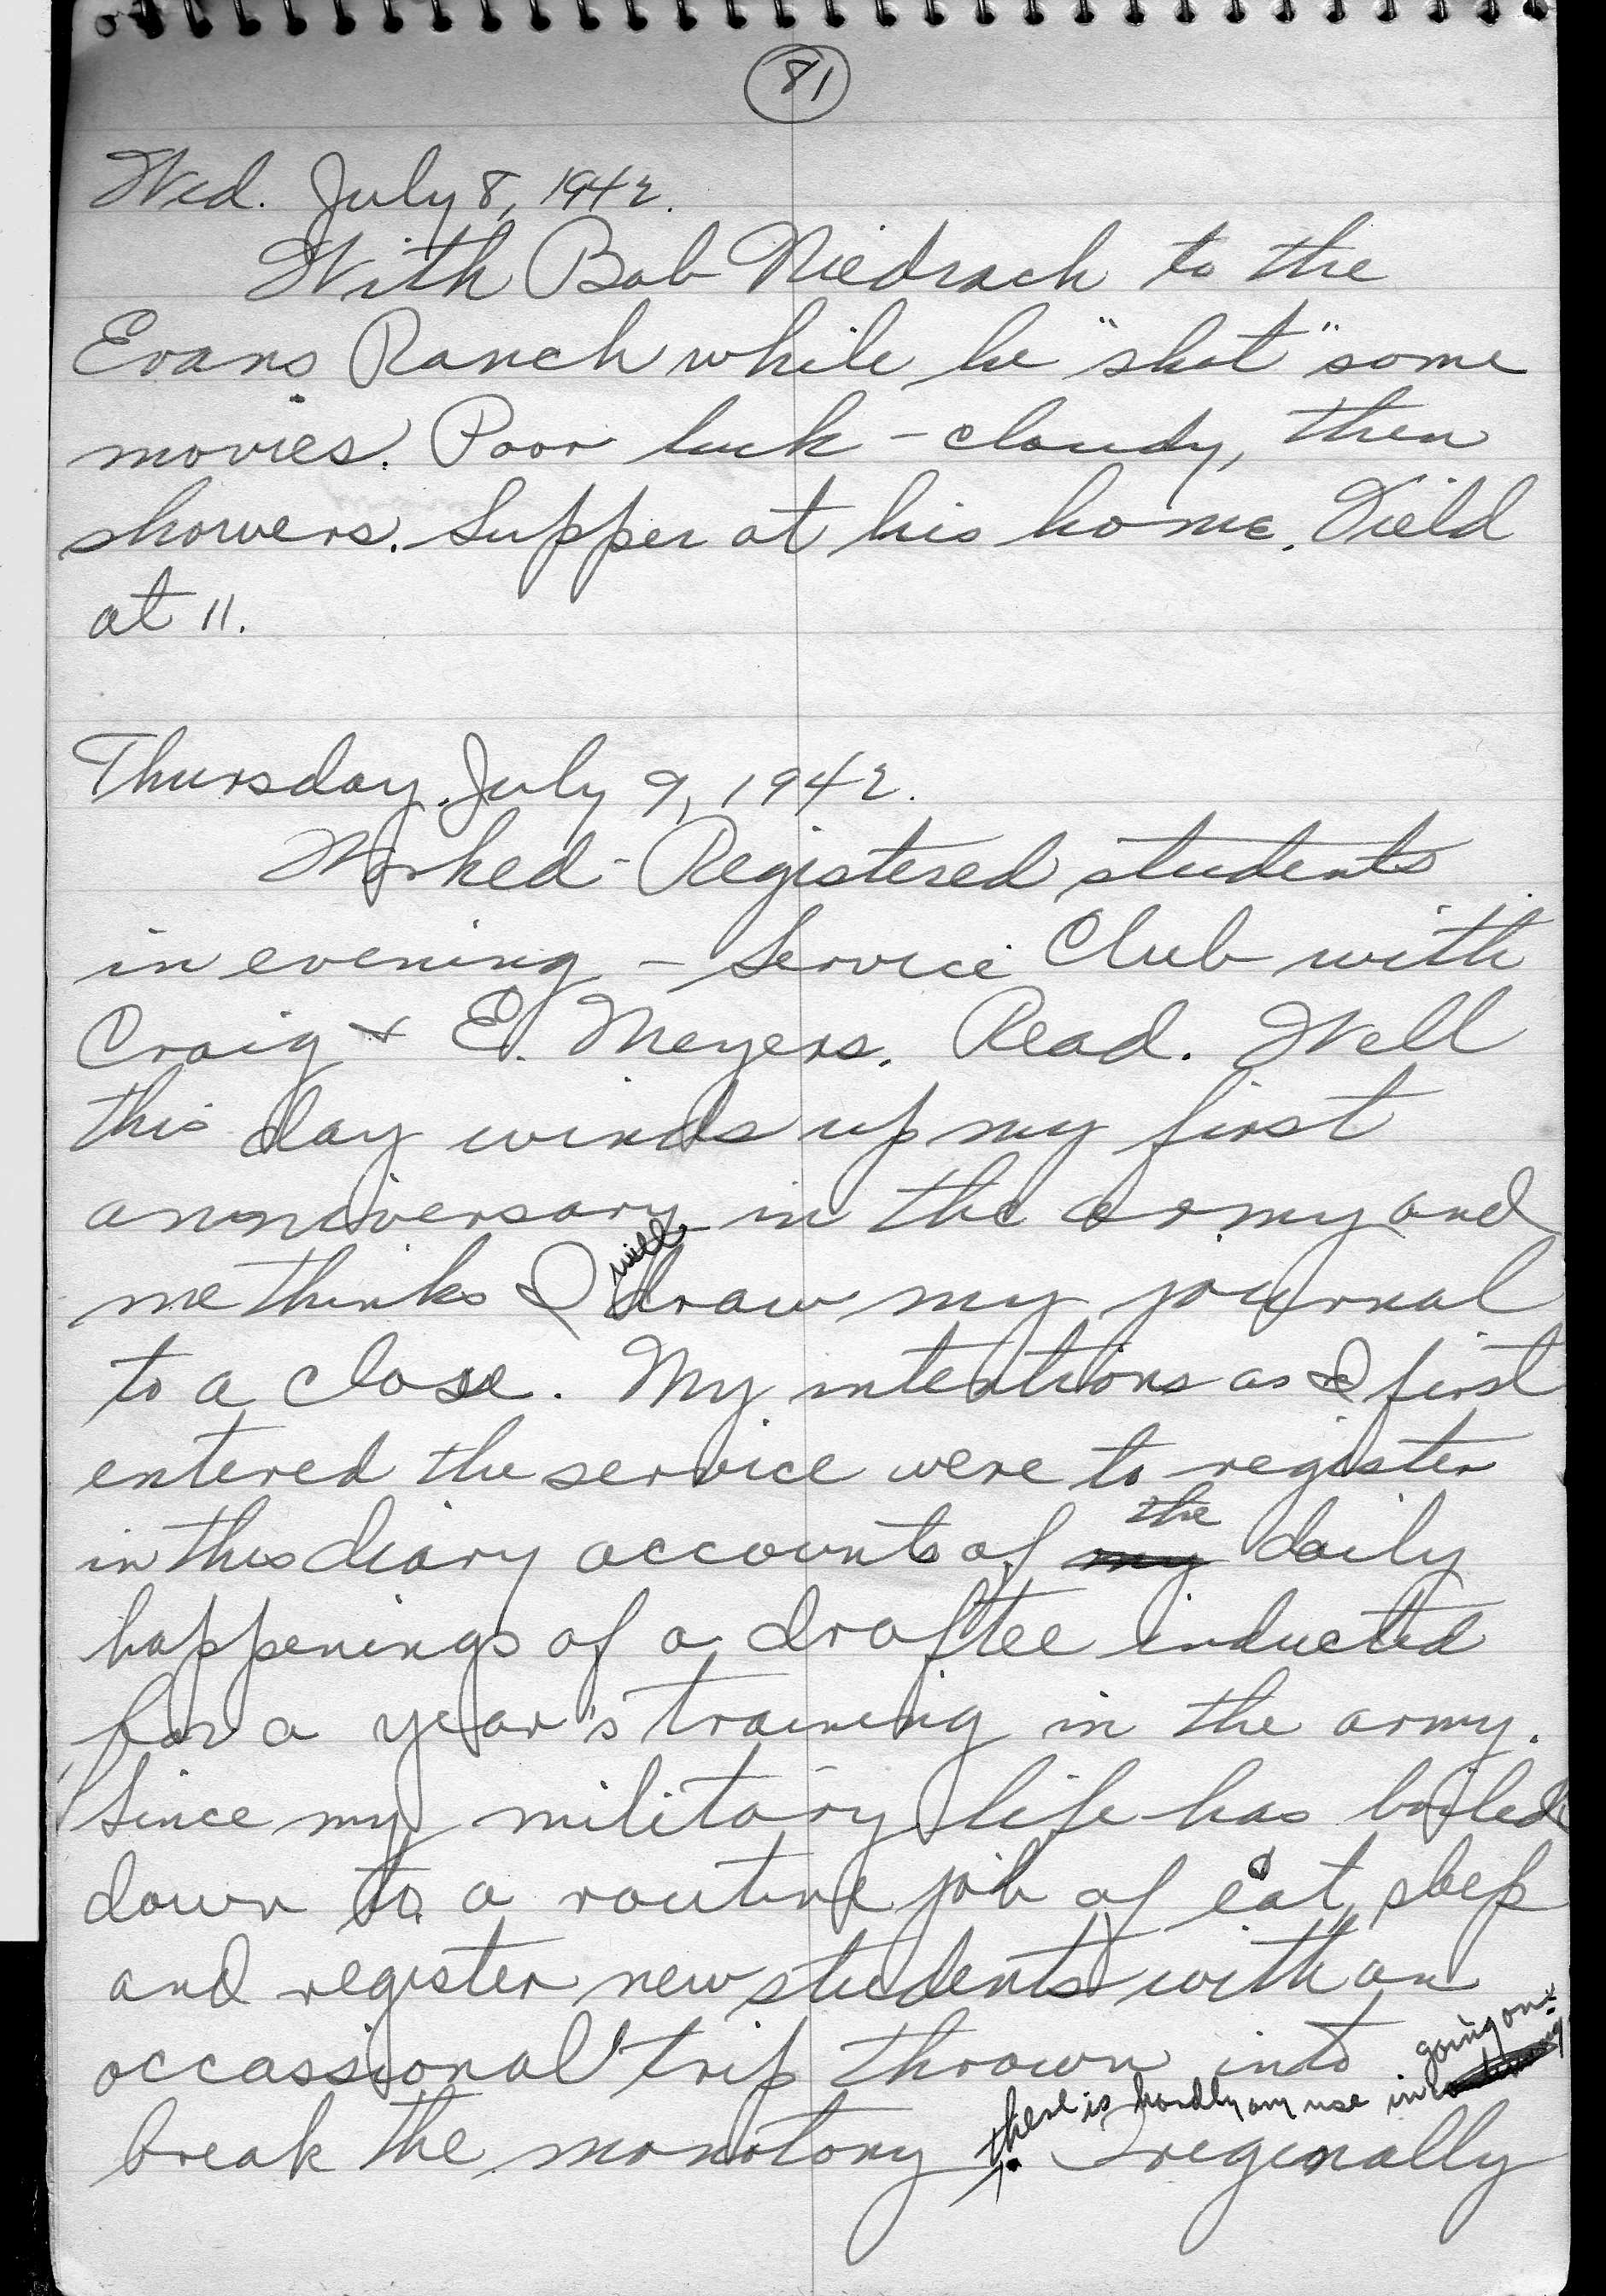 81
Wed. July 8, 1942.
With Bob Niedrach to the
Evans Ranch while he "shot" some
movies. Poor luck - cloudy, then
showers. Supper at his home. Field
at 11.
Thursday, July 9, 1942.
Worked - Registered students
in evening - Service Club with
Craig + E. Meyers. Read. Well
this day winds up my first
anniversary in the army and
me thinks I will draw my journal
to a close. My intentions as I first
entered the service were to register
in this diary accounts of my the daily
happenings of a draftee inducted
for a year's training in the army.
Since my military life has boiled
down to a routine job of eat, sleep
and register new students with an
occassional trip thrown into
going on.
there is hardly any use in
break the monotony. Oreginally